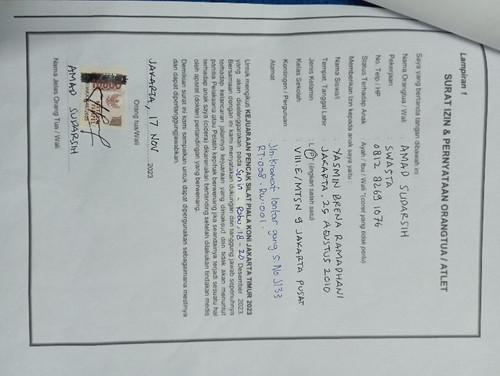 Lampiran 1
SURAT IZIN & PERNYATAAN ORANGTUA / ATLET
Saya yang bertanda tangan dibawah ini
Nama Orangtua / Wali : AMAD SUDARSIH
Pekerjaan : SWASTA
No. Telp / HP : 0812 8269 1076
Status Terhadap Anak : Ayah / Ibu / Wali *(coret yang tidak perlu)
Memberikan Izin kepada anak saya yaitu :
Nama Siswa/i : YASMIN BRENA RAMADHANI
Tempat, Tanggal Lahir : JAKARTA 25 AGUSTUS 2010
Jenis Kelamin : L / P (lingkari salah satu)
Kelas Sekolah : VIII E / MTSN 9 JAKARTA PUSAT
Kontingen / Perguruan :
Alamat : Jln. Kramat lontar gang 5 No J133
RT:008. RW:001.
Untuk mengikuti KEJUARAAN PENCAK SILAT PIALA KONI JAKARTA TIMUR 2023
yang akan diselenggarakan pada Senin - Rabu, 18 - 20 Desember 2023.
Bersamaan dengan ini kami menyatakan dukungan dan tanggung jawab sepenuhnya
terhadap kelancaran jalannya kejuaraan yang dimaksud dan tidak akan menuntut
panitia Pelaksana atau Pelatih kepihak berwenang jika seandainya terjadi sesuatu hal
terhadap anak saya (cidera) dikarenakan bertanding setelah dilakukan tindakan medis
oleh aparat (dokter) pertandingan yang berwenang.
Demikian surat ini kami sampaikan untuk dapat dipergunakan sebagaimana mestinya
dan dapat dipertanggungjawabkan.
JAKARTA, 17 NOV 2023
Orang tua/Wali
AMAD SUDARSIH
Nama Jelas Orang Tua / Wali